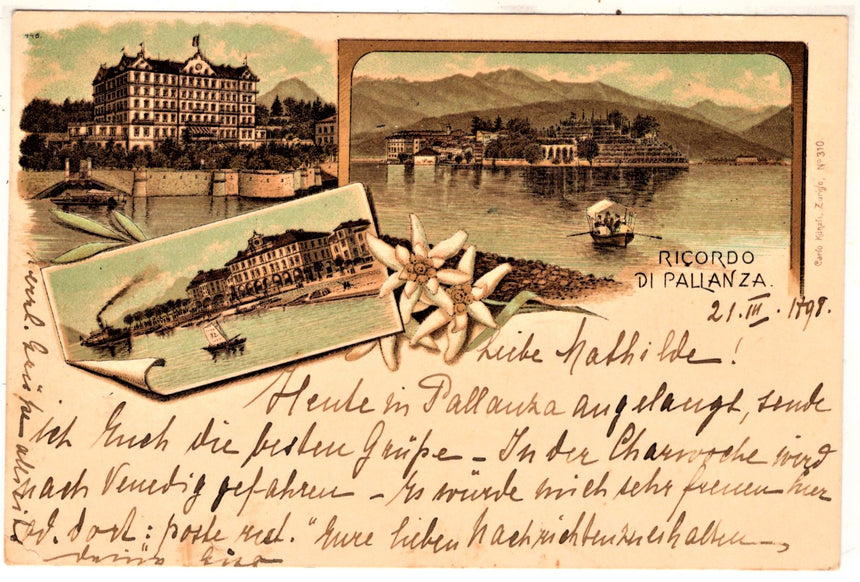 RICORDO
DI PALLANZA.
Carlo Künzli, Zurigo, No 310.
21. III. 1898.
Liebe Mathilde!
Heute in Pallanza angelangt, sende
ich Euch die besten Grüße – In der Charwoche wird
nach Venedig gefahren – Es würde mich sehr freuen hier
od. dort: poste rest." Eure lieben Nachrichten zu erhalten –
herzl. Grüße